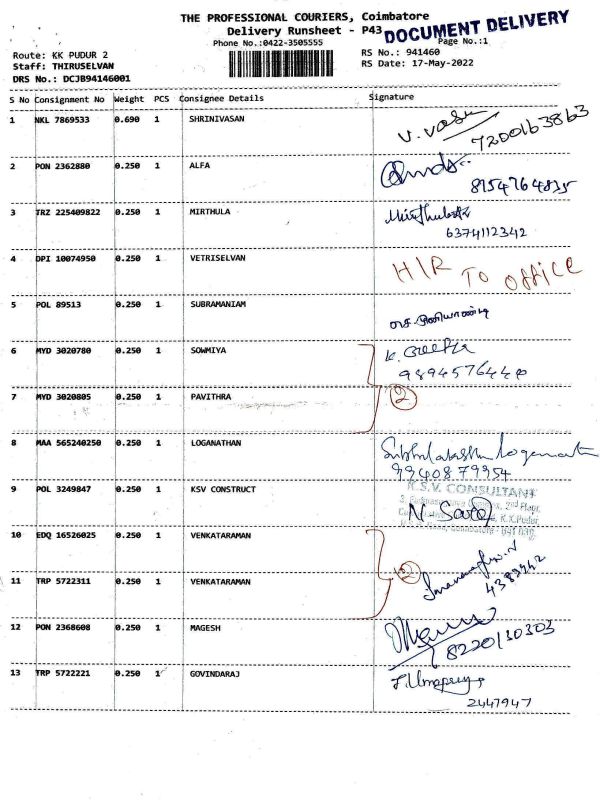 THE PROFESSIONAL COURIERS, Coimbatore
Delivery Runsheet - P43
DOCUMENT DELIVERY
Phone No.:0422-3505555
Page No.:1
Route: KK PUDUR 2
RS No.: 941460
Staff: THIRUSELVAN
RS Date: 17-May-2022
DRS No.: DCJB94146001
S No Consignment No Weight PCS Consignee Details Signature
1 NKL 7869533 0.690 1 SHRINIVASAN V. Vasu
7200163863
2 PON 2362880 0.250 1 ALFA
8154764835
3 TRZ 225409822 0.250 1 MIRTHULA
6374112342
4 DPI 10074950 0.250 1 VETRISELVAN H/R TO OFFICE
5 POL 89513 0.250 1 SUBRAMANIAM
6 MYD 3020780 0.250 1 SOWMIYA
9894576440
7 MYD 3020805 0.250 1 PAVITHRA 2
8 MAA 565240250 0.250 1 LOGANATHAN
9940879954
9 POL 3249847 0.250 1 KSV CONSTRUCT K.S.V. CONSULTANT
2nd Floor,
K.K.Pudur
10 EDQ 16526025 0.250 1 VENKATARAMAN
2
11 TRP 5722311 0.250 1 VENKATARAMAN
4389942
12 PON 2368608 0.250 1 MAGESH
8220130303
13 TRP 5722221 0.250 1 GOVINDARAJ
2447947